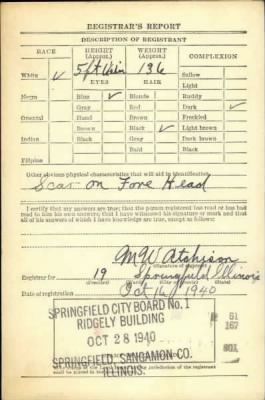 REGISTRAR'S REPORT
DESCRIPTION OF REGISTRANT
RACE
HEIGHT (Approx.)
WEIGHT (Approx.)
COMPLEXION
White ✓
5 ft
136
Sallow
EYES
HAIR
Light
Negro
Blue ✓
Blonde
Ruddy
Gray
Red
Dark ✓
Oriental
Hazel
Brown
Freckled
Brown
Black ✓
Light brown
Indian
Black
Gray
Dark brown
Bald
Black
Filipino
Other obvious physical characteristics that will aid in identification
Scar on Fore Head
I certify that my answers are true; that the person registered has read or has had
read to him his own answers; that I have witnessed his signature or mark and that
all of his answers of which I have knowledge are true, except as follows:
M W Atchison
(Signature of registrar)
Registrar for 19 Springfield Illinois
(Precinct)
Date of registration Oct 16 1940
SPRINGFIELD CITY BOARD No. 1
RIDGELY BUILDING
OCT 28 1940
SPRINGFIELD, SANGAMON CO.
ILLINOIS.
61
167